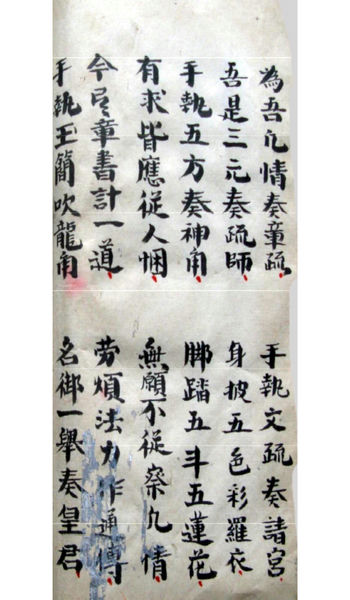 為吾凢情奏章疏
手執文疏奏諸宮
吾是三元奏疏師
身披五色彩羅衣
手執五方奏神角
脚踏五斗五蓮花
有求皆應従人悃
無願不從察凢情
今具章書計一道
劳煩法力作通傳
手執玉簡吹龍角
名御一舉奏皇君